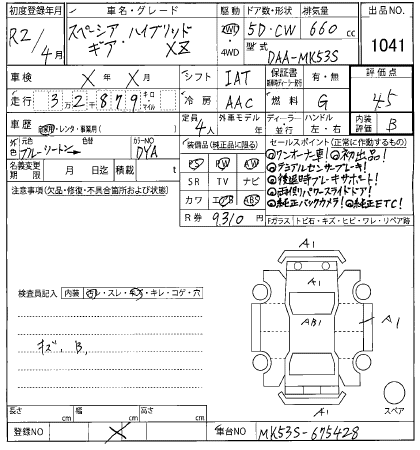 初度登録年月 車名・グレード 駆動 ドア数・形状 排気量 出品NO.
R2/4月 スペーシア ハイブリッド ギア XZ 2WD・4WD 5D・CW 660cc 1041
型式 DAA-MK53S
車検 X年X月 シフト IAT 保証書 有・無 評価点
走行 3万2千879 キロ マイル 冷房 AAC 燃料 G 4.5
車歴 自家用・レンタ・事業用( ) 定員 4人 外車モデル 年 ディーラー・並行 ハンドル 左・右 内装評価 B
外色 元色 ブルー ツートン 色替 カラーNO DYA
名義変更期限 月 日迄 積載 t
装備品(純正品に限る) セールスポイント(正常に作動するもの)
PS PW AW
SR TV ナビ
カワ エアB ABS
R券 9310円
◎ワンオーナー車! ◎初出品!
◎デュアルセンサーブレーキ!
◎後退時ブレーキサポート!
◎両側パワースライドドア!
◎純正バックカメラ! ◎純正ETC!
注意事項(欠品・修復・不具合箇所および状態)
Fガラス トビ石・キズ・ヒビ・ワレ・リペア跡
検査員記入 内装 ヨゴレ・スレ・キズ・キレ・コゲ・穴
キズ、B、
A1
A1
AB1
A1
A1
スペア
長さ cm 幅 cm 高さ cm
登録NO X 車台NO MK53S-675428